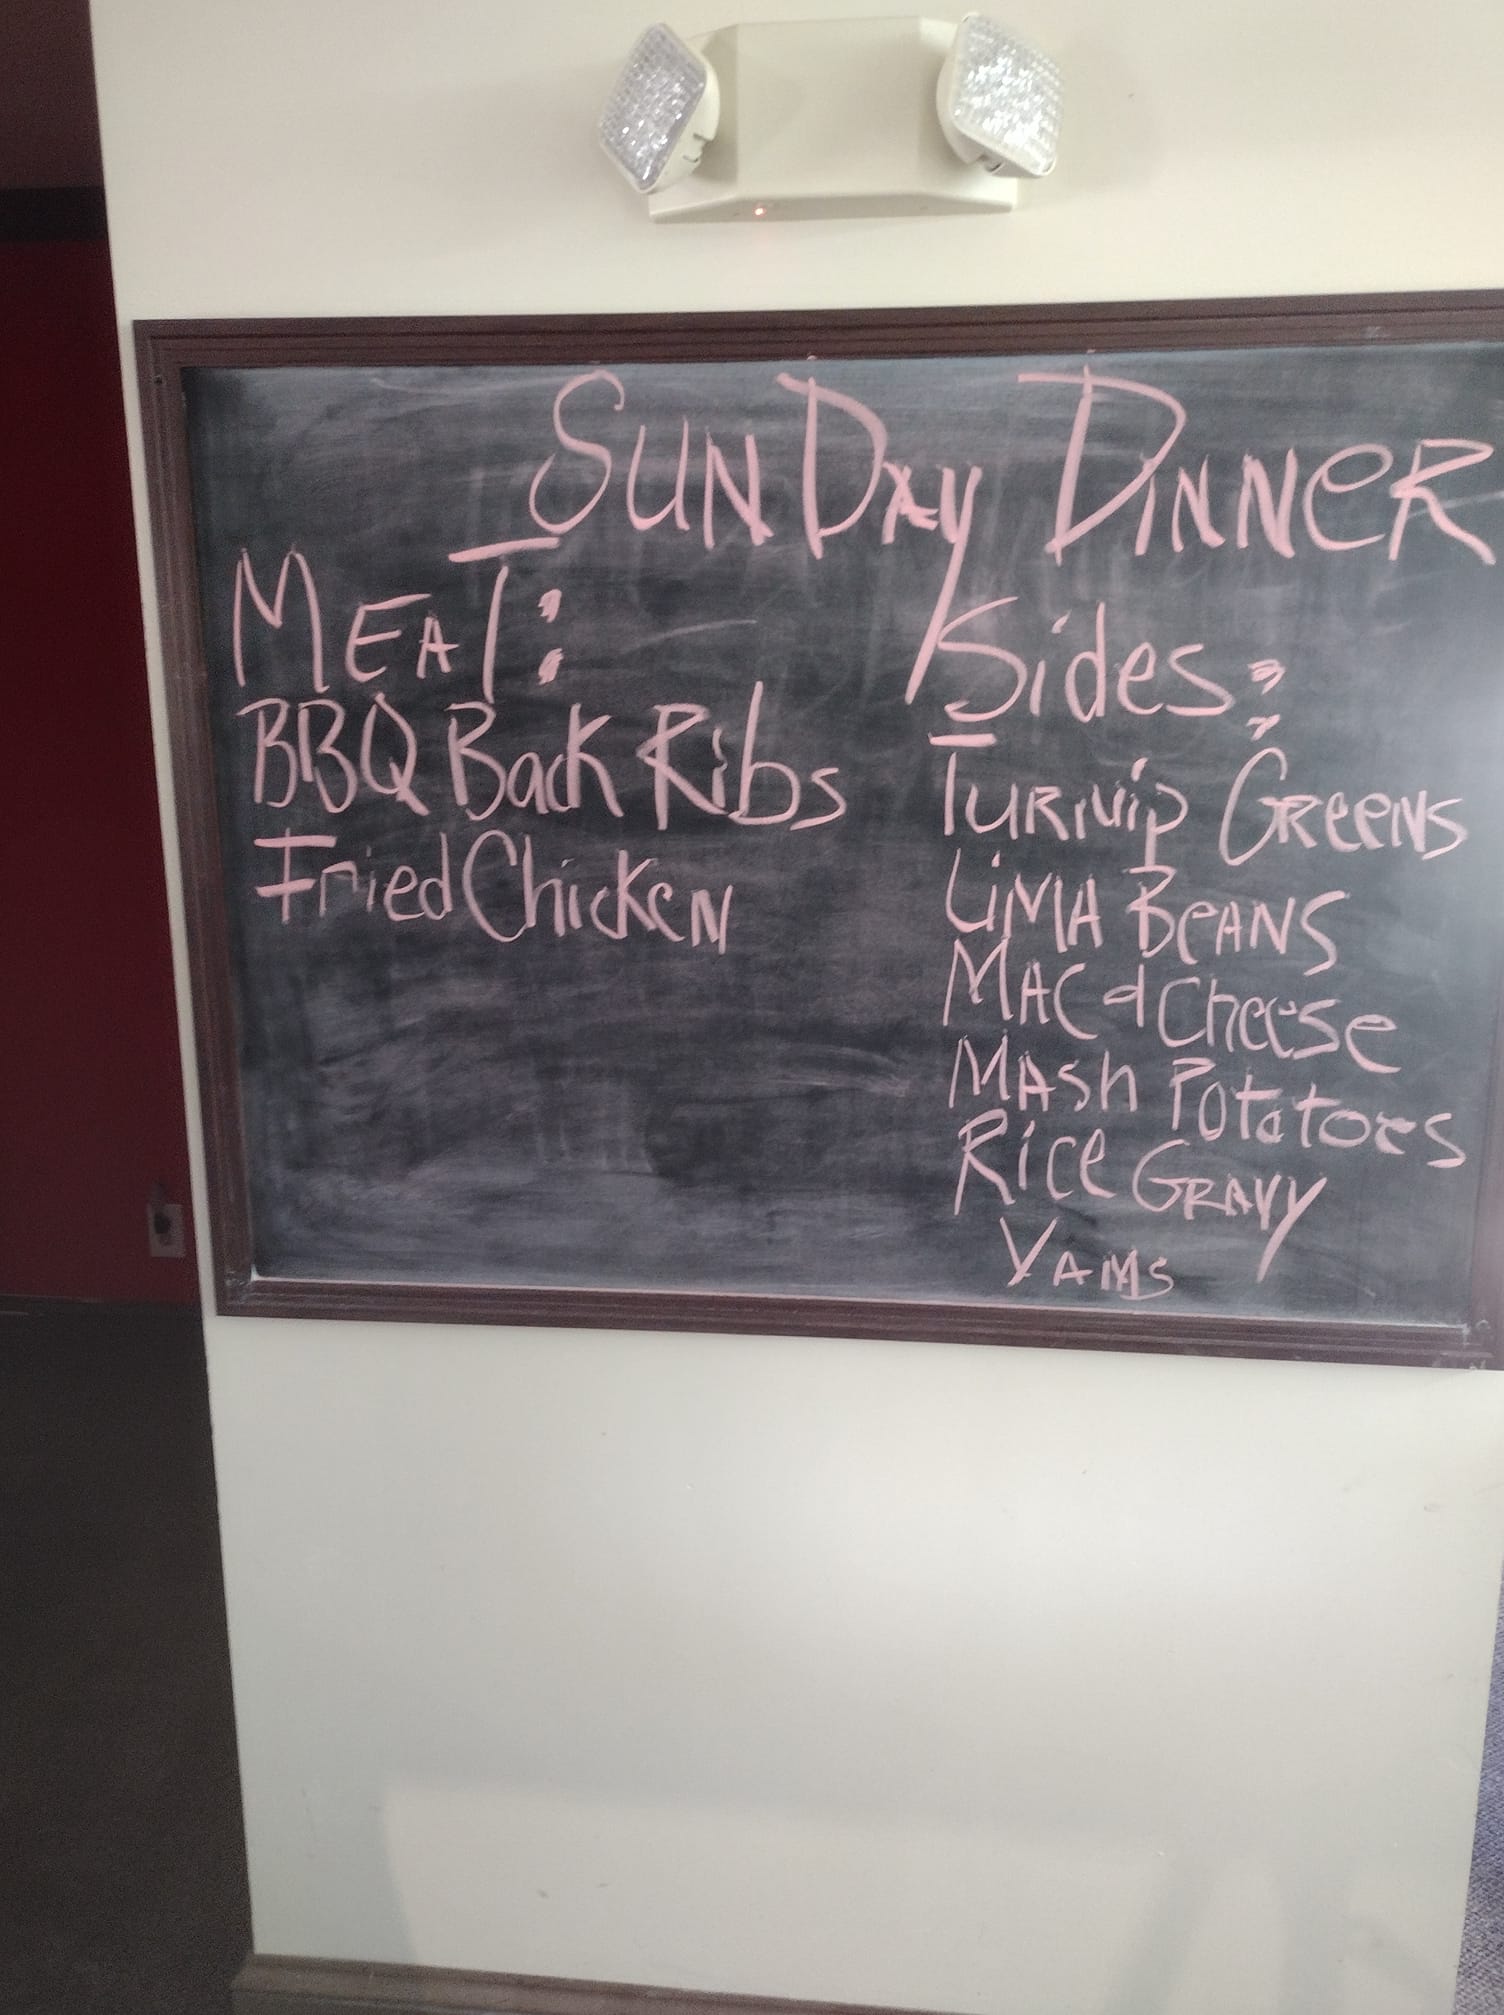 SUNDAY DINNER
MEAT:
BBQ Back Ribs
Fried Chicken
Sides:
TURNip GReeNS
LiMA BeANS
MAC & Cheese
MASh Potatoes
Rice GRAVY
YAMS